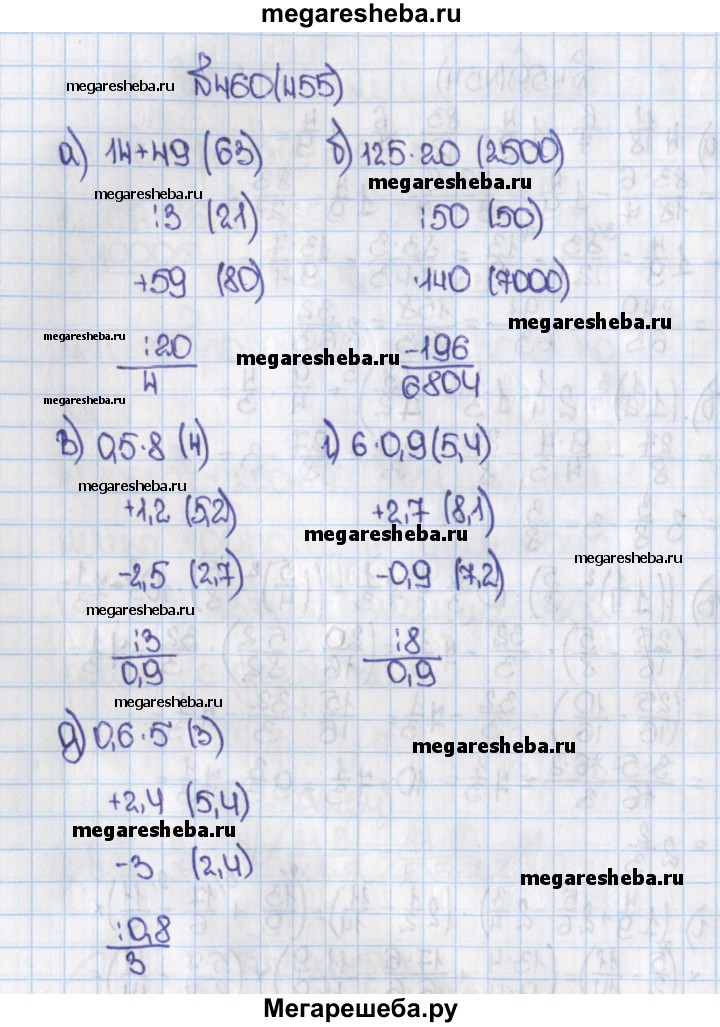 megaresheba.ru
№460(455)
megaresheba.ru
а) 14+49 (63) б) 125·20 (2500)
megaresheba.ru
megaresheba.ru
:3 (21) :50 (50)
+59 (80) ·140 (7000)
megaresheba.ru
megaresheba.ru
:20 -196
megaresheba.ru
4 6804
megaresheba.ru
в) 0,5·8 (4) г) 6·0,9 (5,4)
megaresheba.ru
+1,2 (5,2) +2,7 (8,1)
megaresheba.ru
megaresheba.ru
-2,5 (2,7) -0,9 (7,2)
megaresheba.ru
:3 :8
0,9 0,9
megaresheba.ru
д) 0,6·5 (3)
megaresheba.ru
+2,4 (5,4)
megaresheba.ru
-3 (2,4)
megaresheba.ru
:0,8
3
Мегарешеба.ру